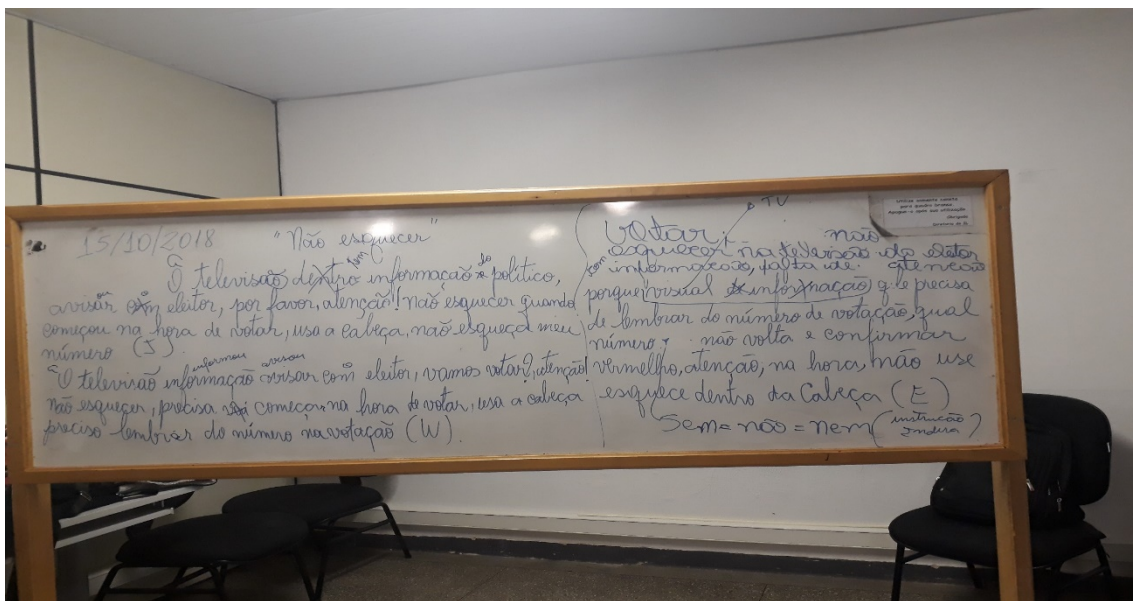 15/10/2018 "Não esquecer"
a
O televisão dentro tem informação do político,
ou
avisar com eleitor, por favor, atenção! não esquecer quando
começou na hora de votar, usa a cabeça, não esqueça meu
número (J).
informou avisou
O televisão informação avisar com eleitor, vamos votar?, atenção!
não esquecer, precisa começar na hora de votar, usa a cabeça
preciso lembrar do número na votação (W).
Votar; TV
não
esquecer na televisão do eleitor
tem informação, falta de: atenção
porque visual informação, q le precisa
de lembrar do número de votação, qual
número, não volta e confirmar
vermelho, atenção, na hora, não use
esquece dentro da Cabeça (E)
Sem = não = nem (instrução
Utilize somente caneta
para quadro branco
Apague-o após sua utilização
Obrigado